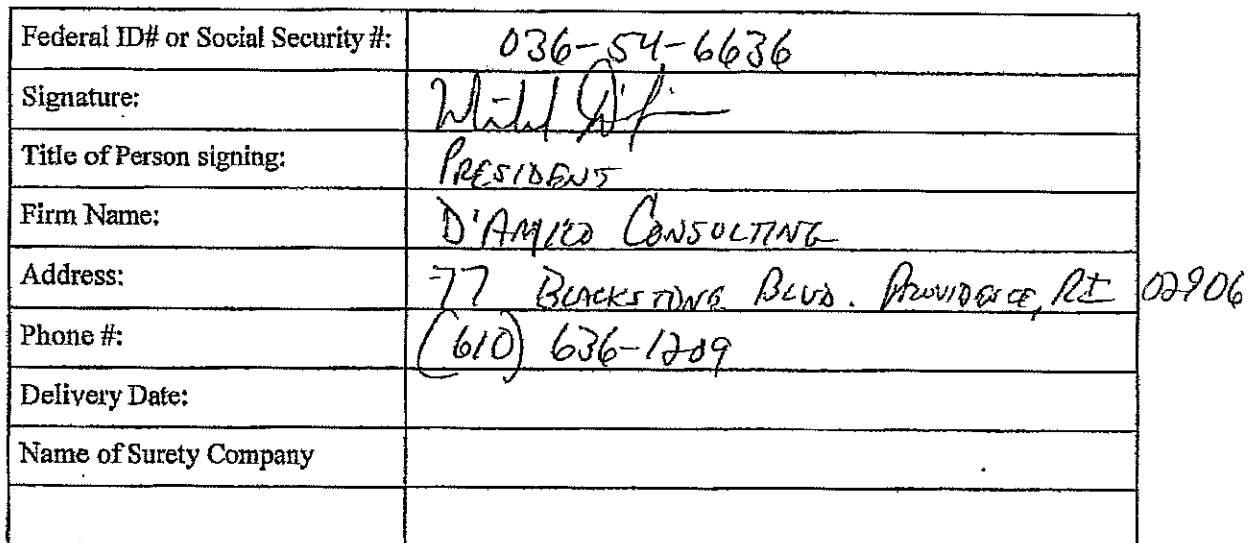 Federal ID# or Social Security #: 036-54-6636
Signature:
Title of Person signing: PRESIDENT
Firm Name: D'AMICO CONSULTING
Address: 77 BLACKSTONE BLVD. PROVIDENCE, RI 02906
Phone #: (610) 636-1209
Delivery Date:
Name of Surety Company